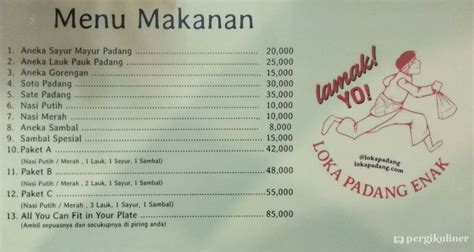 Menu Makanan
1. Aneka Sayur Mayur Padang 20,000
2. Aneka Lauk Pauk Padang 25,000
3. Aneka Gorengan 15,000
4. Soto Padang 30,000
5. Sate Padang 35,000
6. Nasi Putih 10,000
7. Nasi Merah 10,000
8. Aneka Sambal 8,000
9. Sambal Spesial 15,000
10. Paket A 42,000
(Nasi Putih / Merah , 1 Lauk, 1 Sayur, 1 Sambal)
11. Paket B 48,000
(Nasi Putih / Merah , 2 Lauk, 1 Sayur, 1 Sambal)
12. Paket C 55,000
(Nasi Putih / Merah , 3 Lauk, 1 Sayur, 1 Sambal)
13. All You Can Fit in Your Plate 85,000
(Ambil sepuasnya dan secukupnya di piring anda)
lamak!
YO!
@lokapadang
lokapadang.com
LOKA PADANG ENAK
pergikuliner